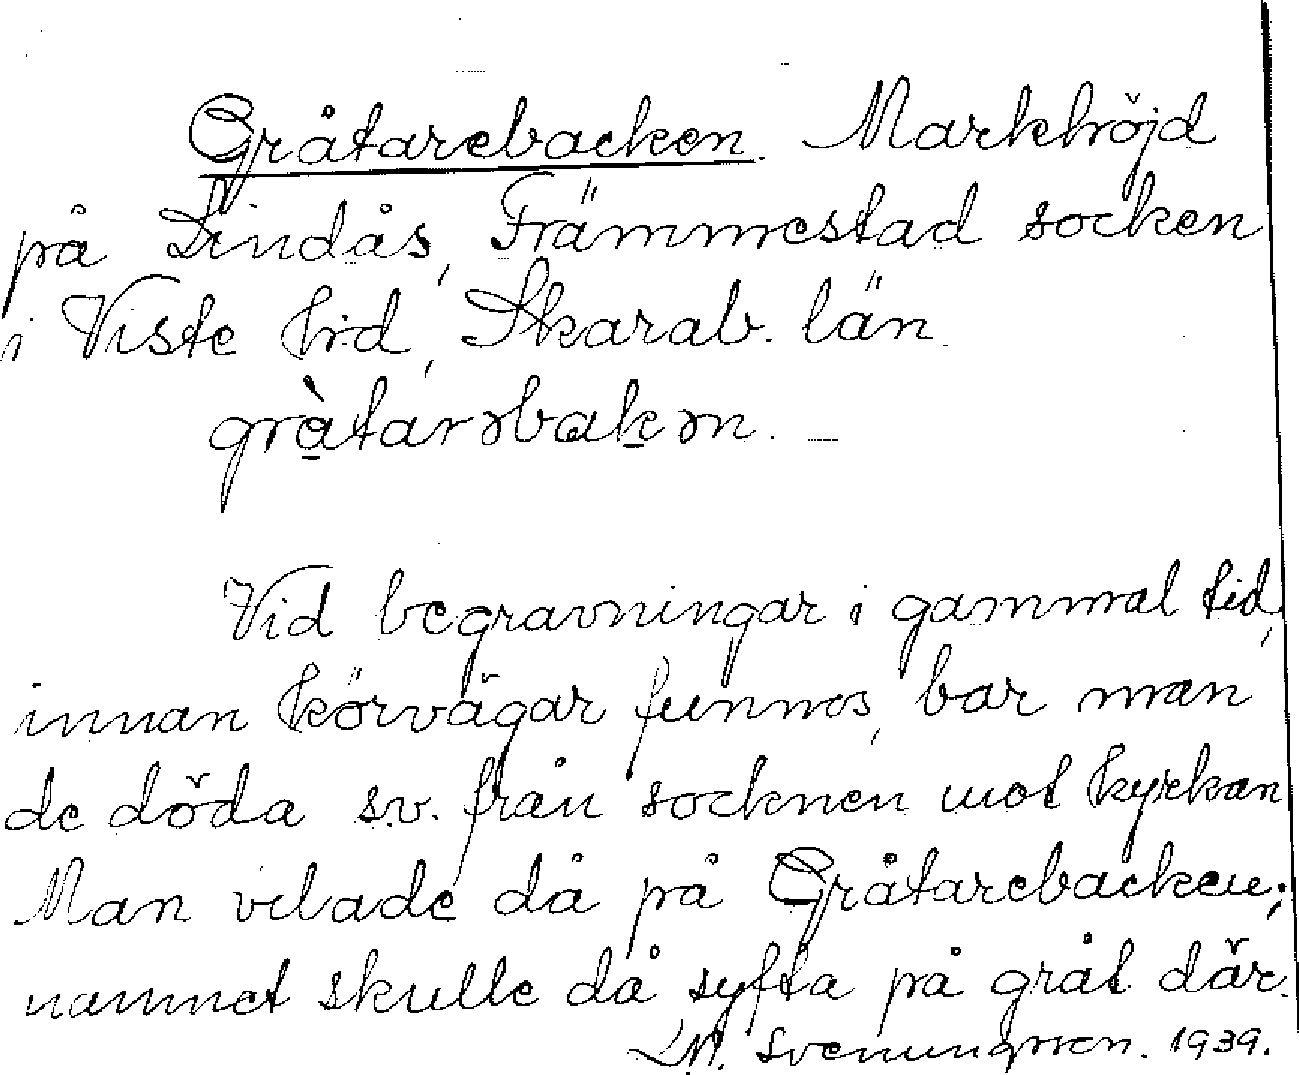 Gråtarebacken. Markhöjd
på Lindås, Främmestad socken
i Viste hd, Skarab. län.
grὰtarəbakən. —
Vid begravningar i gammal tid,
innan körvägar funnos, bar man
de döda s.v. från socknen mot kyrkan
Man vilade då på Gråtarebacken;
namnet skulle då syfta på gråt där.
M. Svenungsson. 1939.